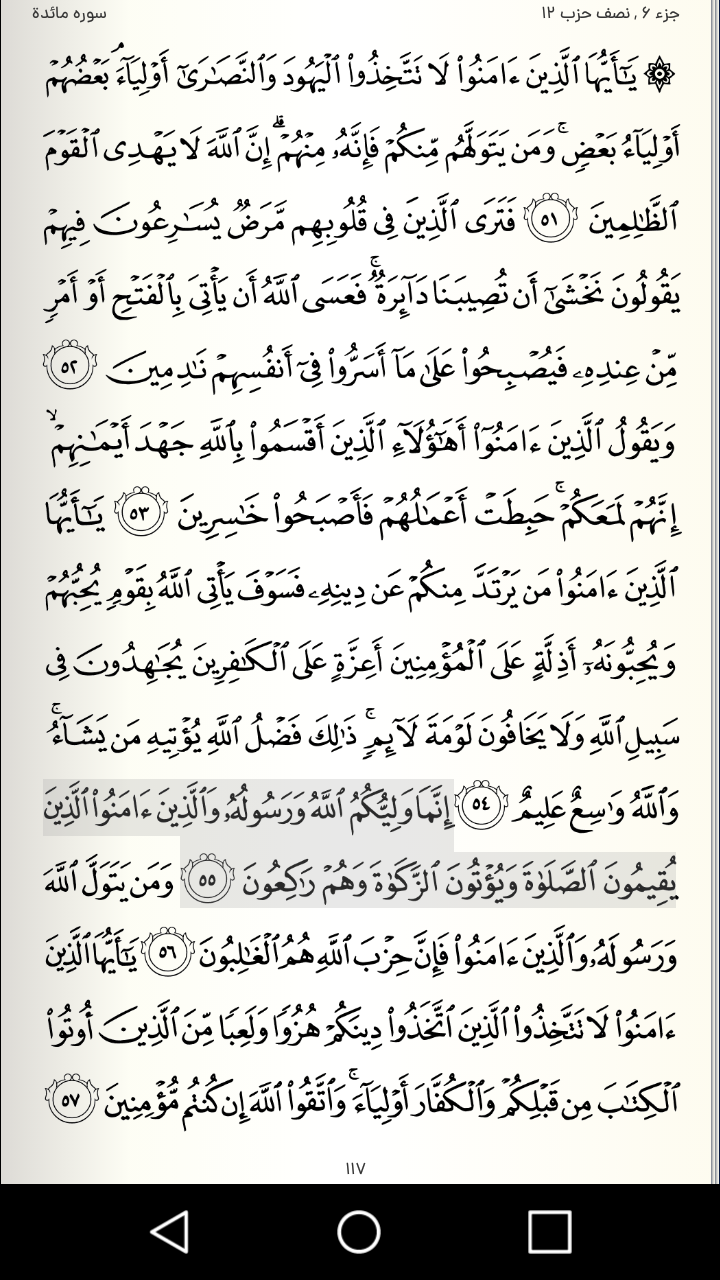 جزء ۶ , نصف حزب ۱۲
سوره مائدة
۞ يَـٰٓأَيُّهَا ٱلَّذِينَ ءَامَنُوا۟ لَا تَتَّخِذُوا۟ ٱلْيَهُودَ وَٱلنَّصَـٰرَىٰٓ أَوْلِيَآءَ ۘ بَعْضُهُمْ
أَوْلِيَآءُ بَعْضٍ ۚ وَمَن يَتَوَلَّهُم مِّنكُمْ فَإِنَّهُۥ مِنْهُمْ ۗ إِنَّ ٱللَّهَ لَا يَهْدِى ٱلْقَوْمَ
ٱلظَّـٰلِمِينَ ٥١ فَتَرَى ٱلَّذِينَ فِى قُلُوبِهِم مَّرَضٌ يُسَـٰرِعُونَ فِيهِمْ
يَقُولُونَ نَخْشَىٰٓ أَن تُصِيبَنَا دَآئِرَةٌ ۚ فَعَسَى ٱللَّهُ أَن يَأْتِىَ بِٱلْفَتْحِ أَوْ أَمْرٍ
مِّنْ عِندِهِۦ فَيُصْبِحُوا۟ عَلَىٰ مَآ أَسَرُّوا۟ فِىٓ أَنفُسِهِمْ نَـٰدِمِينَ ٥٢
وَيَقُولُ ٱلَّذِينَ ءَامَنُوٓا۟ أَهَـٰٓؤُلَآءِ ٱلَّذِينَ أَقْسَمُوا۟ بِٱللَّهِ جَهْدَ أَيْمَـٰنِهِمْ ۙ
إِنَّهُمْ لَمَعَكُمْ ۚ حَبِطَتْ أَعْمَـٰلُهُمْ فَأَصْبَحُوا۟ خَـٰسِرِينَ ٥٣ يَـٰٓأَيُّهَا
ٱلَّذِينَ ءَامَنُوا۟ مَن يَرْتَدَّ مِنكُمْ عَن دِينِهِۦ فَسَوْفَ يَأْتِى ٱللَّهُ بِقَوْمٍ يُحِبُّهُمْ
وَيُحِبُّونَهُۥٓ أَذِلَّةٍ عَلَى ٱلْمُؤْمِنِينَ أَعِزَّةٍ عَلَى ٱلْكَـٰفِرِينَ يُجَـٰهِدُونَ فِى
سَبِيلِ ٱللَّهِ وَلَا يَخَافُونَ لَوْمَةَ لَآئِمٍ ۚ ذَٰلِكَ فَضْلُ ٱللَّهِ يُؤْتِيهِ مَن يَشَآءُ ۚ
وَٱللَّهُ وَٰسِعٌ عَلِيمٌ ٥٤ إِنَّمَا وَلِيُّكُمُ ٱللَّهُ وَرَسُولُهُۥ وَٱلَّذِينَ ءَامَنُوا۟ ٱلَّذِينَ
يُقِيمُونَ ٱلصَّلَوٰةَ وَيُؤْتُونَ ٱلزَّكَوٰةَ وَهُمْ رَٰكِعُونَ ٥٥ وَمَن يَتَوَلَّ ٱللَّهَ
وَرَسُولَهُۥ وَٱلَّذِينَ ءَامَنُوا۟ فَإِنَّ حِزْبَ ٱللَّهِ هُمُ ٱلْغَـٰلِبُونَ ٥٦ يَـٰٓأَيُّهَا ٱلَّذِينَ
ءَامَنُوا۟ لَا تَتَّخِذُوا۟ ٱلَّذِينَ ٱتَّخَذُوا۟ دِينَكُمْ هُزُوًا وَلَعِبًا مِّنَ ٱلَّذِينَ أُوتُوا۟
ٱلْكِتَـٰبَ مِن قَبْلِكُمْ وَٱلْكُفَّارَ أَوْلِيَآءَ ۚ وَٱتَّقُوا۟ ٱللَّهَ إِن كُنتُم مُّؤْمِنِينَ ٥٧
۱۱۷